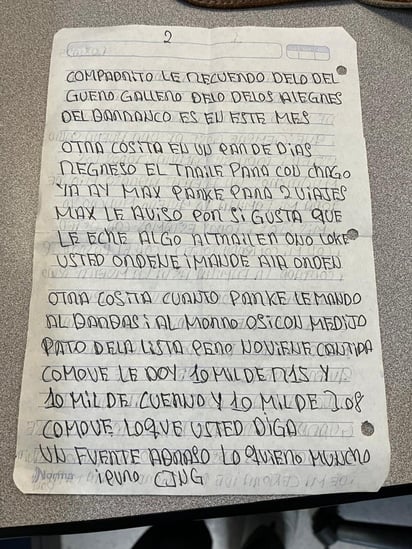 2
COMPADRITO LE RECUERDO DELO DEL
GUERO GALLERO DELO DELOS
DEL BARRANCO ES EN ESTE MES
OTRA COSITA EN UN PAR DE DIAS
REGRESO EL TRAILE PARA CON CHAGO
YA AY MAX PARKE PARA 2 VIAJES
MAX LE AVISO POR SI GUSTA QUE
LE ECHE ALGO ALTRAILER ORO LOKE
USTED ORDENE I MANDE AIR ORDEN
OTRA COSITA CUANTO PARKE LE MANDO
AL BARBAS I AL MORRO OSICON MEDIJO
PATO DELA LISTA PERO NOVIENE CANTIDA
COMOVE LE DOY 10 MIL DE R15 Y
10 MIL DE CUERNO Y 10 MIL DE 308
COMOVE LOQUE USTED DIGA
UN FUERTE ABRASO LO QUIERO MUNCHO
Norma
IPURO CJNG